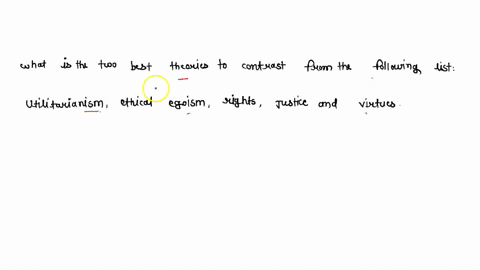 what is the two best theories to contrast from the following list:
Utilitarianism, ethical egoism, rights, justice and virtues.